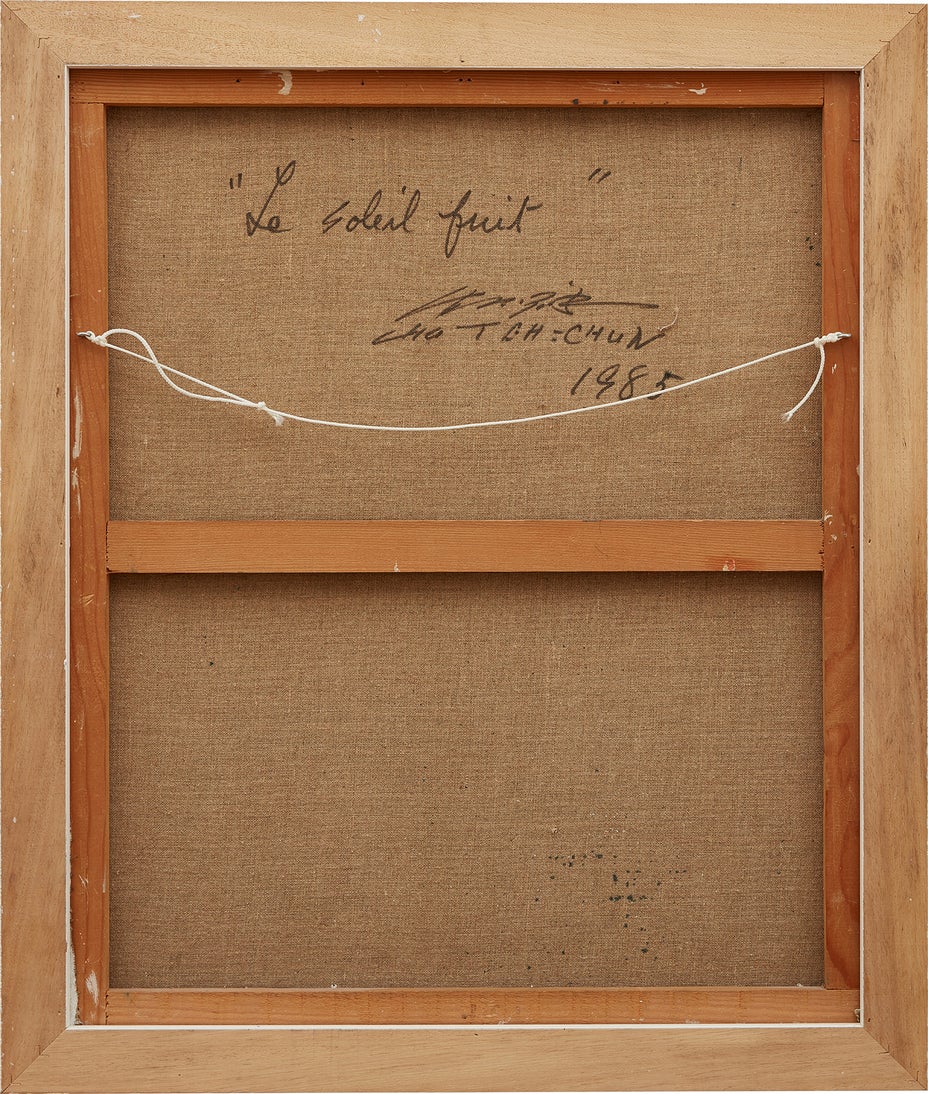 "Le soleil fruit"
CHU TEH-CHUN
1985